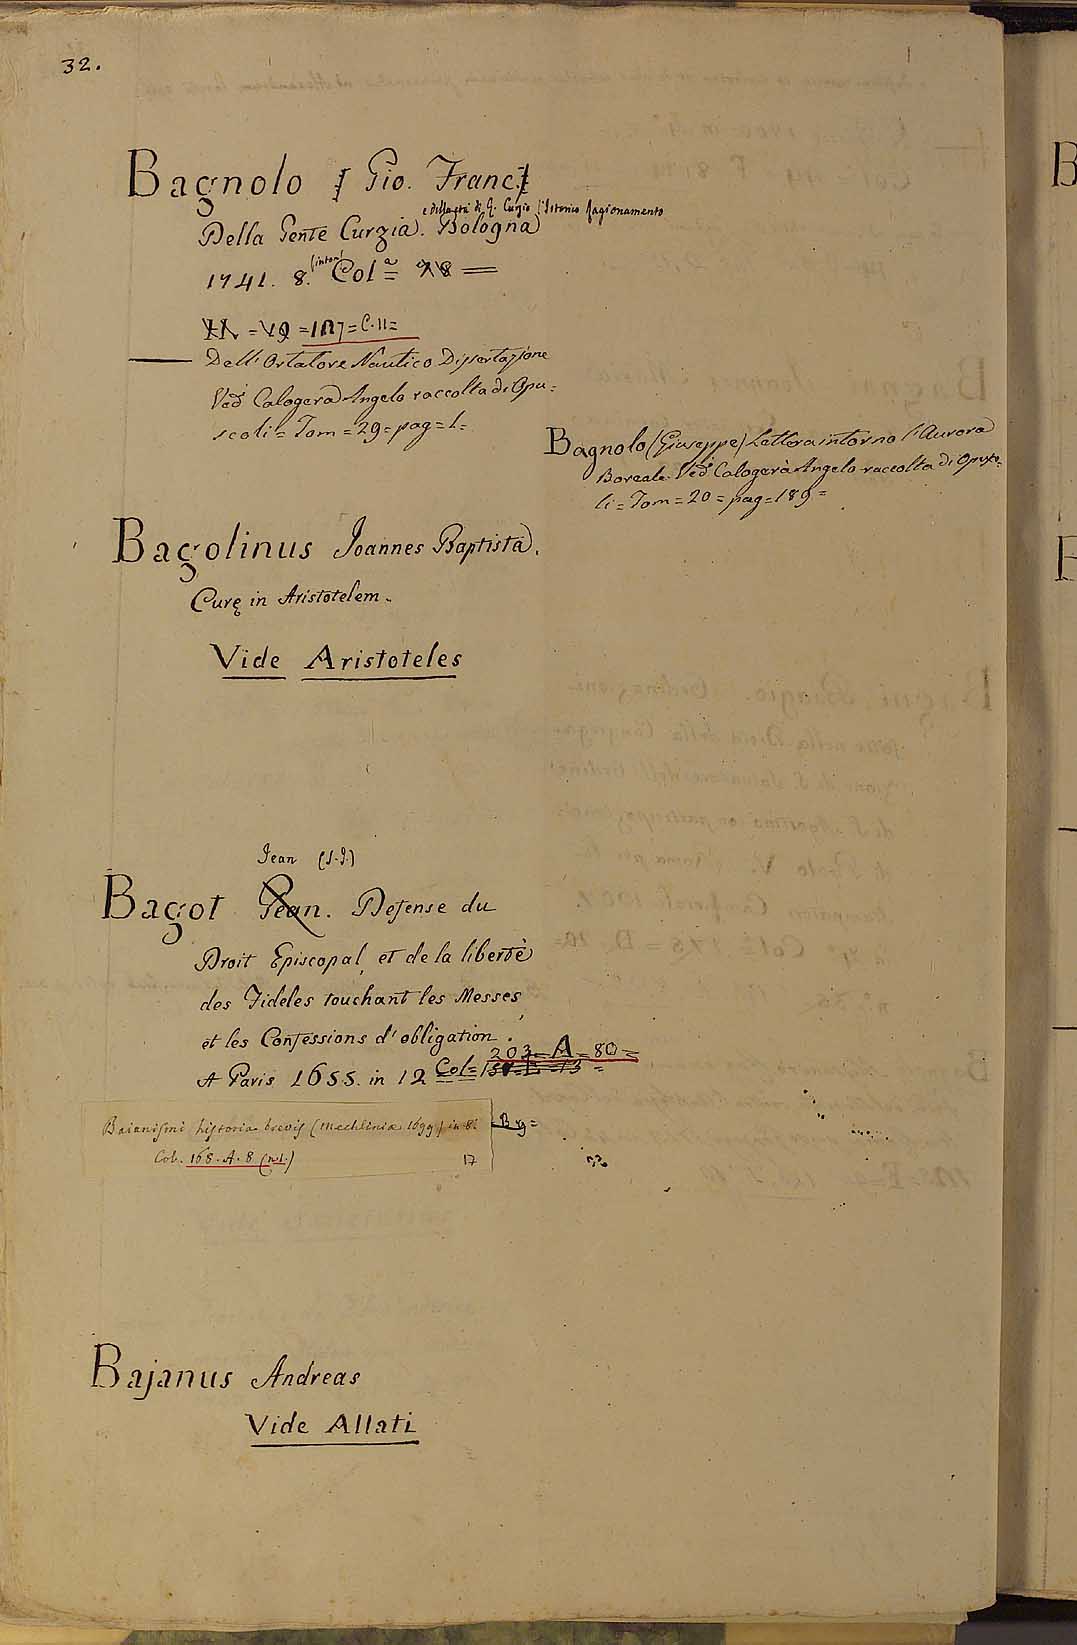 32.
Bagnolo [Gio. Franc.]
e dell'età di Q. Curzio l'Istorico Ragionamento
Della Gente Curzia. Bologna
1741. 8. (inton) Colª 78 =
= 19 = 107 = C. 11 =
— Dell' Ortatore Nautico Dissertazione
Ved Calogerà Angelo raccolta di Opu=
scoli = Tom = 29 = pag = 1 =
Bagnolo (Giuseppe) Lettera intorno l'Aurora
Boreale. Ved Calogerà Angelo raccolta di Opusco=
li = Tom = 20 = pag = 189 =
Bagolinus Joannes Baptista.
Curę in Aristotelem.
Vide Aristoteles
Jean (S.J.)
Bagot Jean. Defense du
Droit Episcopal, et de la libertè
des Fideles touchant les Messes,
et les Confessions d'obligation.
203 = A = 80 =
A Paris 1655. in 12 Col = 13 =
Baianismi historia brevis (Mechliniæ 1699) in 8.
Col. 168. A. 8 (n1.) 17
Bajanus Andreas
Vide Allati